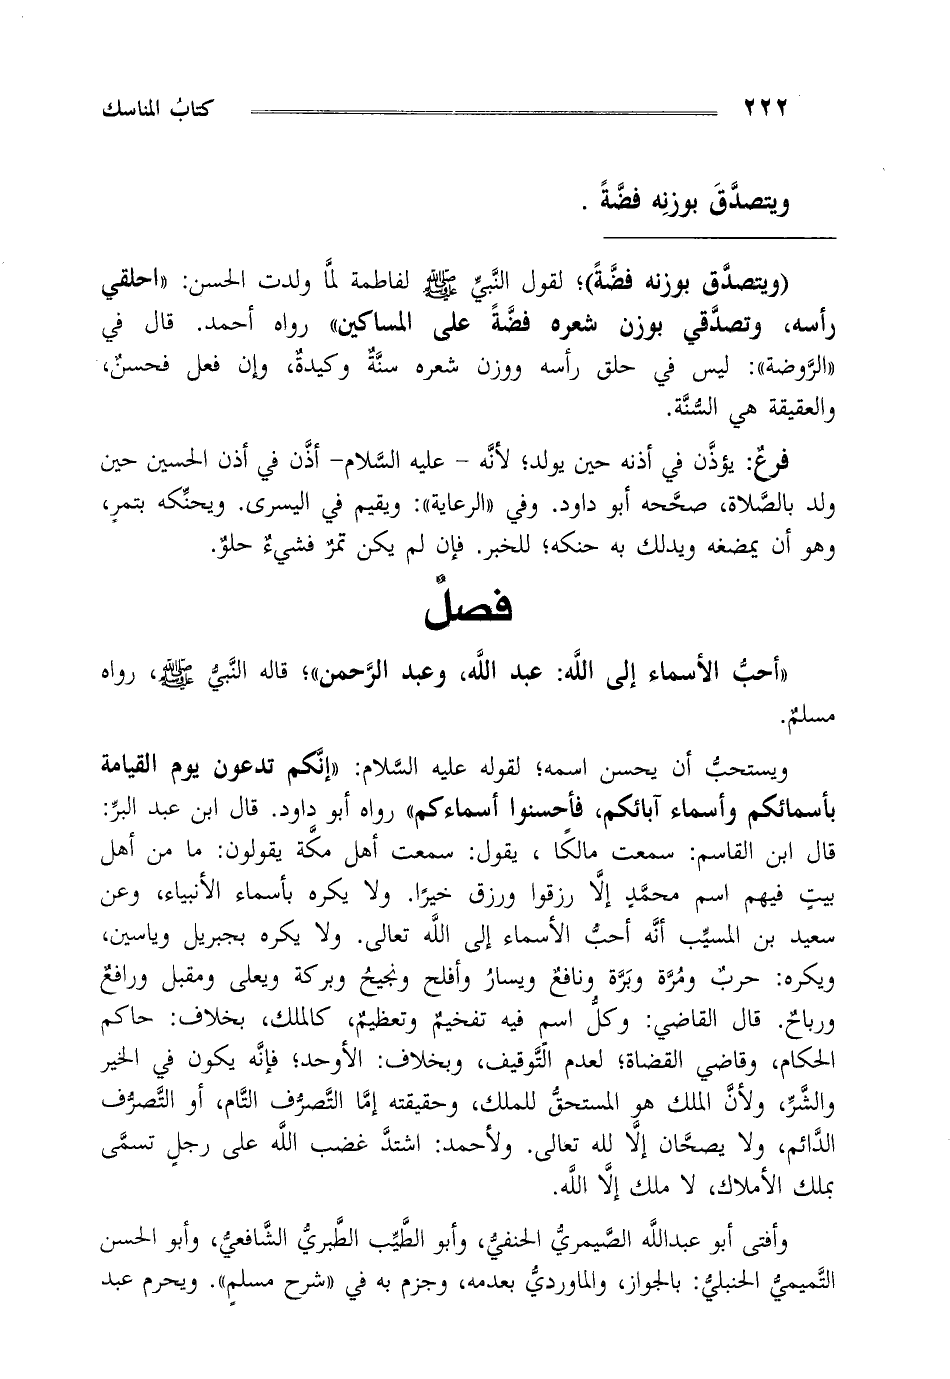 ٢٢٢ كتابُ المناسك
ويتصدَّقَ بوزنِه فضَّةً .
(ويتصدَّق بوزنه فضَّةً)؛ لقول النَّبيِّ ﷺ لفاطمة لمَّا ولدت الحسن: «احلقي
رأسه، وتصدَّقي بوزن شعره فضَّةً على المساكين» رواه أحمد. قال في
«الرَّوضة»: ليس في حلق رأسه ووزن شعره سنَّةٌ وكيدةٌ، وإن فعل فحسنٌ،
والعقيقة هي السُّنَّة.
فرعٌ: يؤذَّن في أذنه حين يولد؛ لأنَّه - عليه السَّلام- أذَّن في أذن الحسين حين
ولد بالصَّلاة، صحَّحه أبو داود. وفي «الرعاية»: ويقيم في اليسرى. ويحنِّكه بتمرٍ،
وهو أن يمضغه ويدلك به حنكه؛ للخبر. فإن لم يكن تمرٌ فشيءٌ حلوٌ.
فصلٌ
«أحبُّ الأسماء إلى اللَّه: عبد اللَّه، وعبد الرَّحمن»؛ قاله النَّبيُّ ﷺ، رواه
مسلمٌ.
ويستحبُّ أن يحسن اسمه؛ لقوله عليه السَّلام: «إنَّكم تدعون يوم القيامة
بأسمائكم وأسماء آبائكم، فأحسنوا أسماءكم» رواه أبو داود. قال ابن عبد البرِّ:
قال ابن القاسم: سمعت مالكًا ، يقول: سمعت أهل مكَّة يقولون: ما من أهل
بيتٍ فيهم اسم محمَّدٍ إلَّا رزقوا ورزق خيرًا. ولا يكره بأسماء الأنبياء، وعن
سعيد بن المسيِّب أنَّه أحبُّ الأسماء إلى اللَّه تعالى. ولا يكره بجبريل وياسين،
ويكره: حربٌ ومُرَّة وبَرَّة ونافعٌ ويسارٌ وأفلح ونجيحٌ وبركة ويعلى ومقبل ورافعٌ
ورباحٌ. قال القاضي: وكلُّ اسمٍ فيه تفخيمٌ وتعظيمٌ، كالملك، بخلاف: حاكم
الحكام، وقاضي القضاة؛ لعدم التَّوقيف، وبخلاف: الأوحد؛ فإنَّه يكون في الخير
والشَّرِّ، ولأنَّ الملك هو المستحقُّ للملك، وحقيقته إمَّا التَّصرُّف التَّام، أو التَّصرُّف
الدَّائم، ولا يصحَّان إلَّا لله تعالى. ولأحمد: اشتدَّ غضب اللَّه على رجلٍ تسمَّى
بملك الأملاك، لا ملك إلَّا اللَّه.
وأفتى أبو عبداللَّه الصَّيمريُّ الحنفيُّ، وأبو الطَّيِّب الطَّبريُّ الشَّافعيُّ، وأبو الحسن
التَّميميُّ الحنبليُّ: بالجواز، والماورديُّ بعدمه، وجزم به في «شرح مسلمٍ». ويحرم عبد